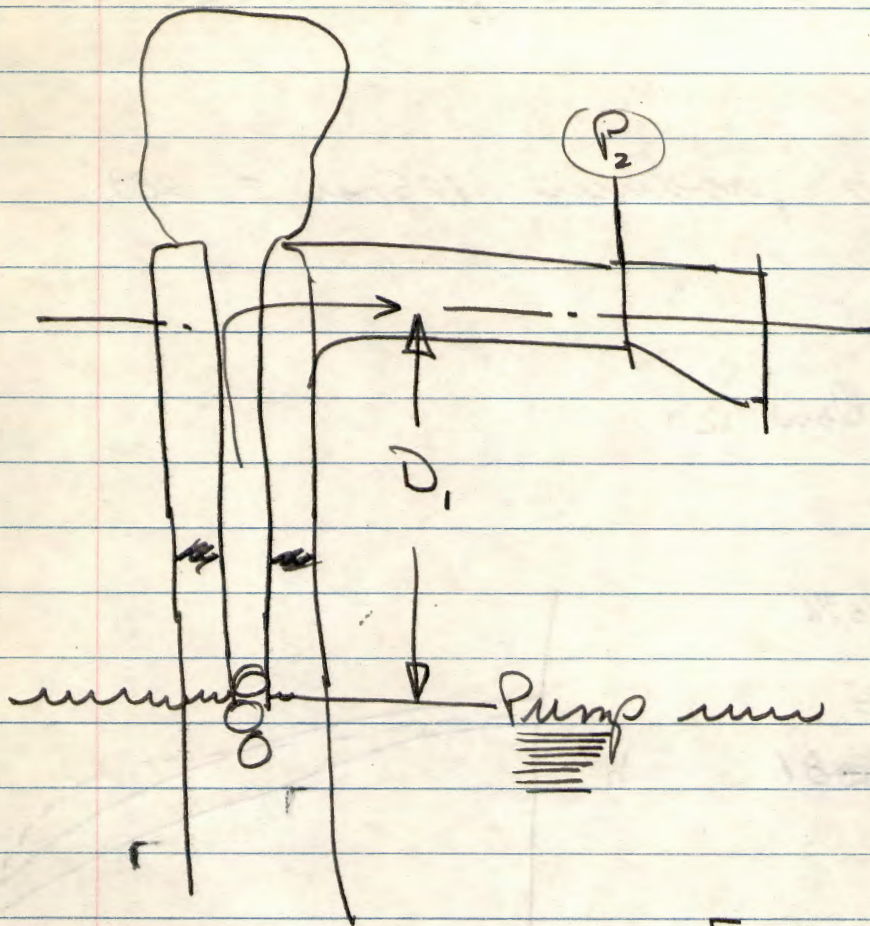 P₂
D₁
Pump